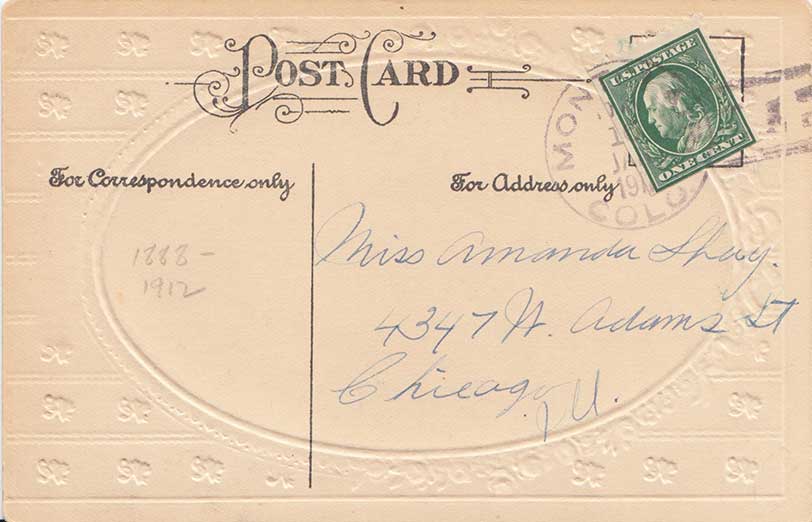 POST CARD
U.S. POSTAGE
ONE CENT
MON
COLO.
For Correspondence only
For Address only
1888 -
1912
Miss Amanda Shay.
4347 W. Adams St
Chicago,
Ill.